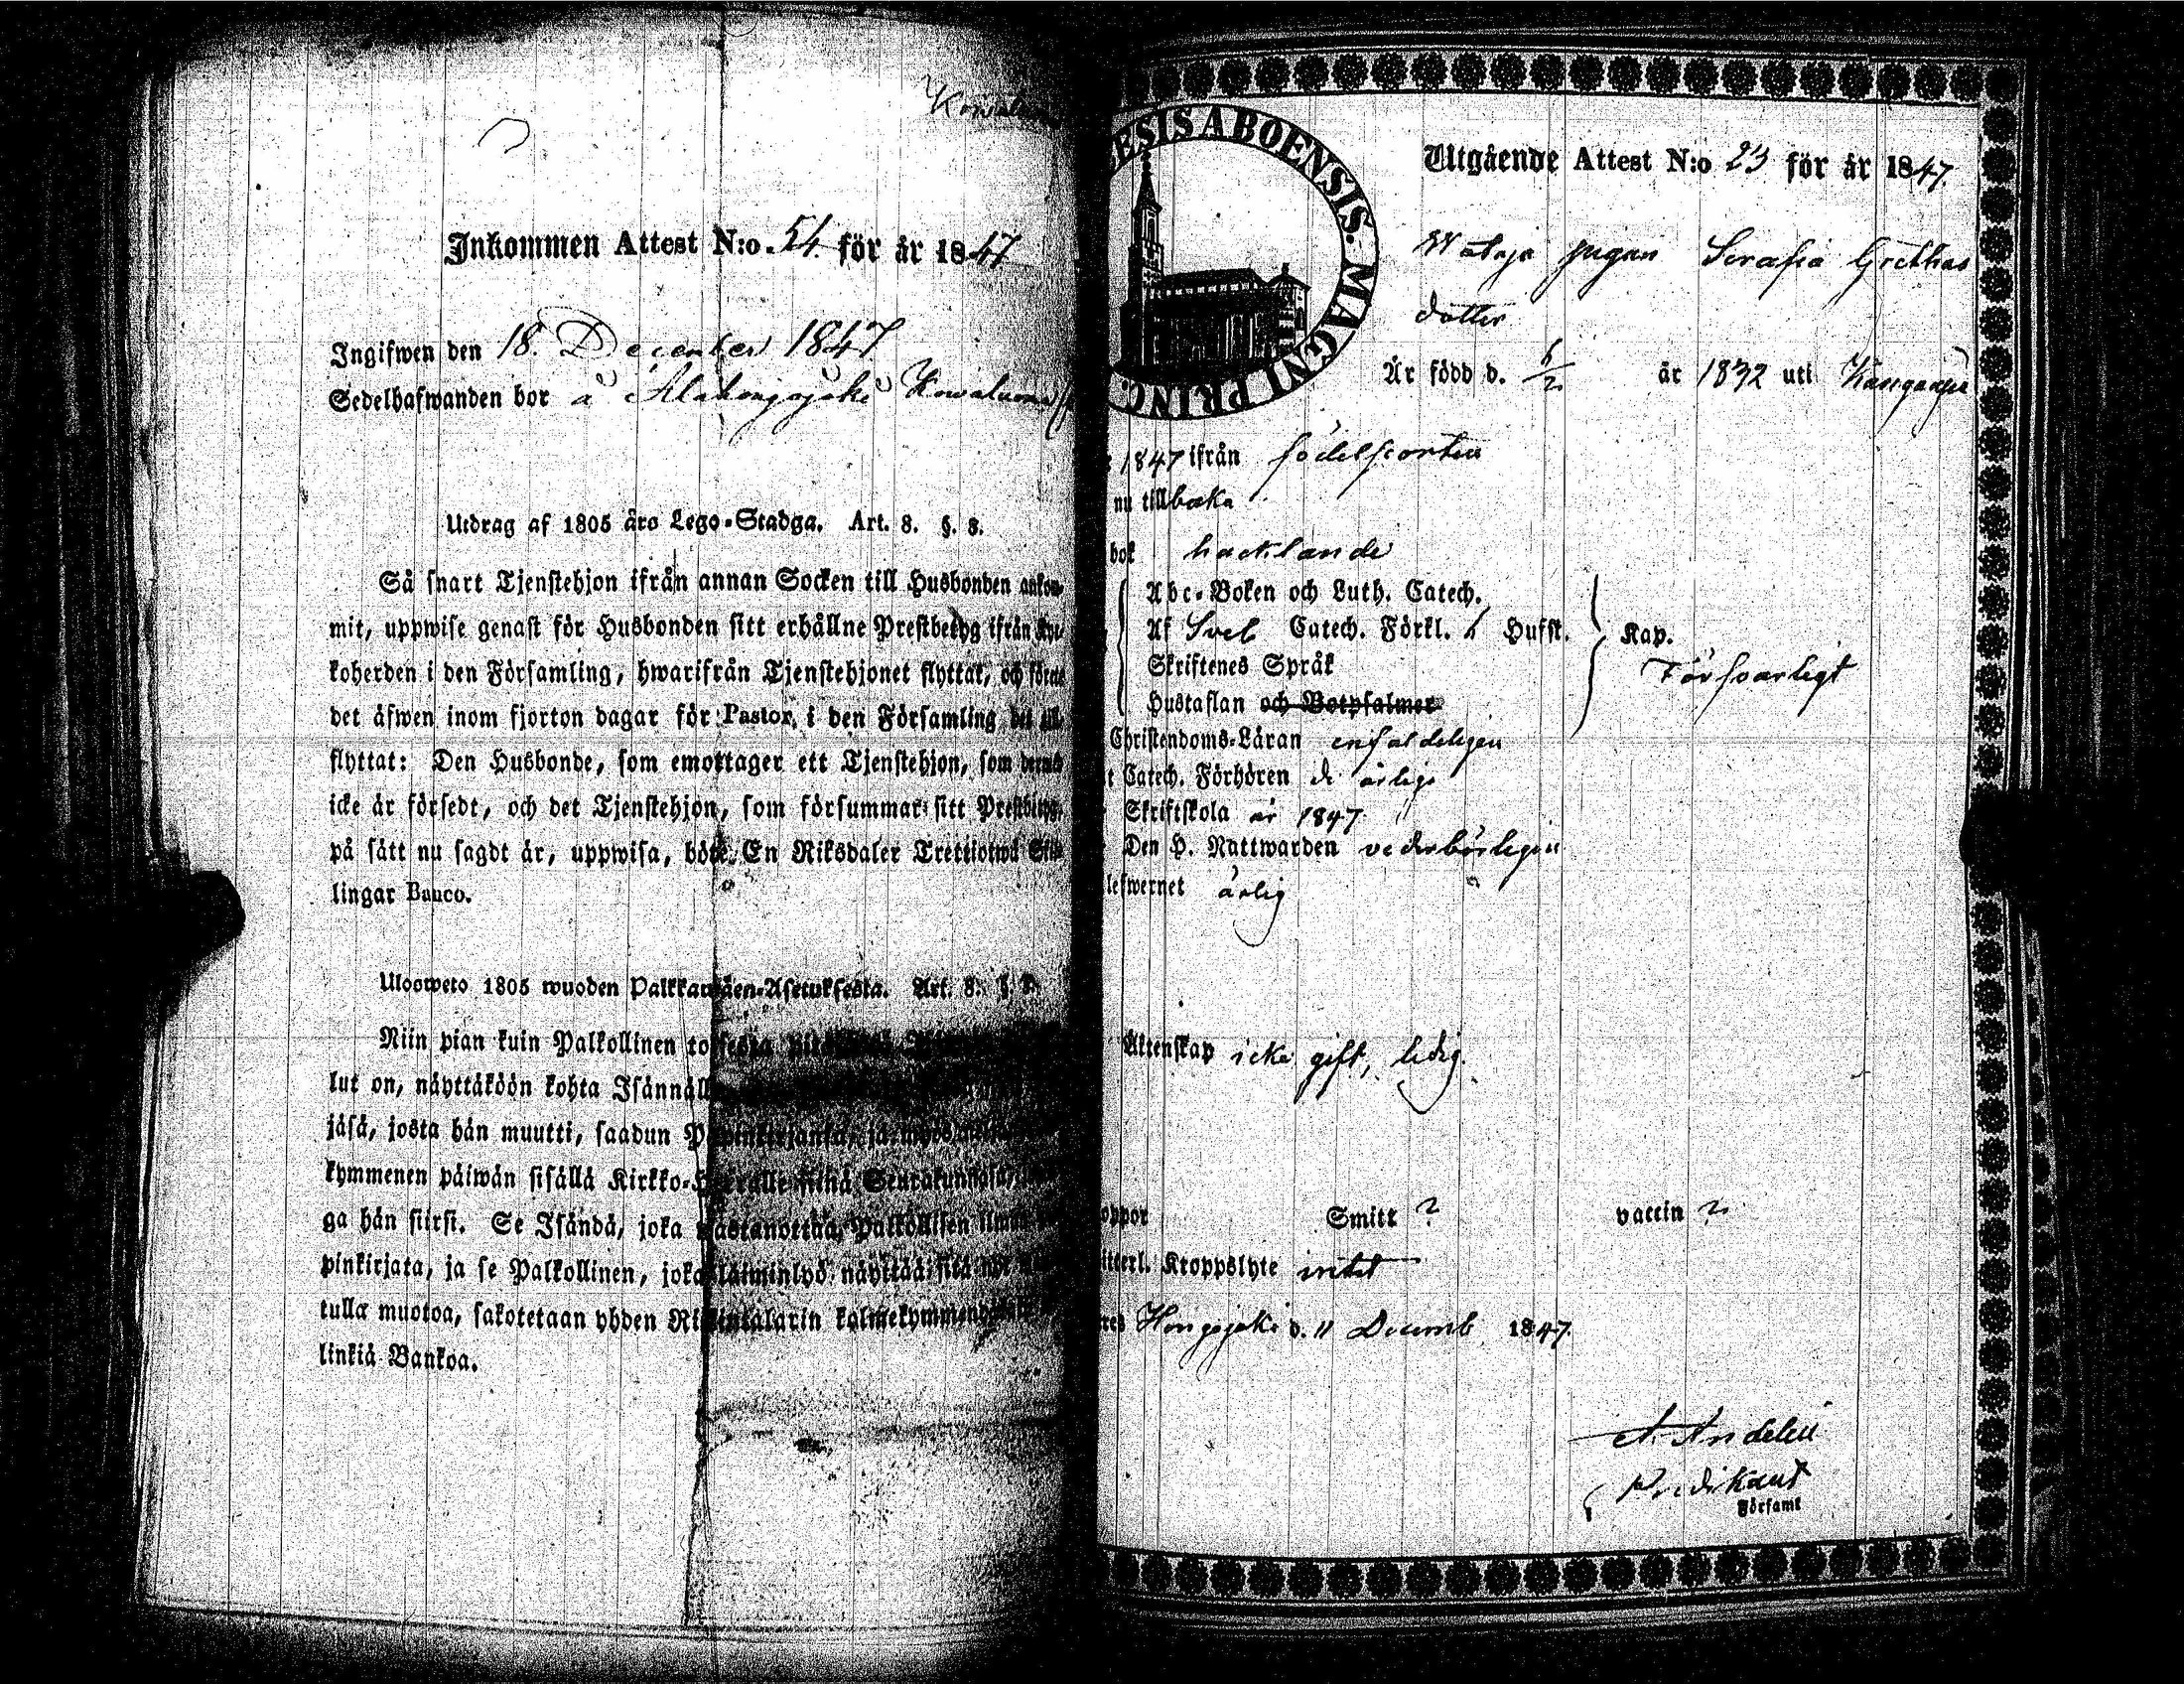 Inkommen Attest N:o 54 för år 1847
Ingifwen den 18 December 1847
Sedelhafwanden bor å
Utdrag af 1805 års Lego-Stadga. Art. 8. §. 8.
Så snart Tjenstehjon ifrån annan Socken till Husbonden ankom-
mit, uppwise genast för Husbonden sitt erhållne Prestbetyg ifrån Kyr-
koherden i den Församling, hwarifrån Tjenstehjonet flyttat, och
det äfwen inom fjorton dagar för Pastor i den Församling det
flyttat: Den Husbonde, som emottager ett Tjenstehjon, som dermed
icke är försedt, och det Tjenstehjon, som försummar sitt Prestbetyg,
på sätt nu sagdt är, uppwisa, böte En Riksdaler Trettiotwå Skil-
lingar Banco.
Uloosweto 1805 wuoden Palkkawäen-Asetuksesta. Art. 8. §. 8.
Niin pian kuin Palkollinen toisesta
lut on, näyttäköön kohta Isännäll
jäsä, josta hän muutti, saadun Papinkirjansa, ja myös
kymmenen päiwän sisällä Kirkko-Herralle siinä Seurakunnasa,
ga hän siirsi. Se Isändä, joka wastanottaa Palkollisen ilman
pinkirjata, ja se Palkollinen, joka laiminlyö näyttää sitä nyt
tulla muotoa, sakotetaan yhden Rikintalarin kolmekymmendä
linkiä Bankoa.
ESIS ABOENSIS. MAGNI PRINC.
Utgående Attest N:o 23 för år 1847.
pigan Serafia Grethas
dotter
Är född d. 6/2 år 1832 uti
1847 ifrån födelseorten
nu tillbaka
bok hacklande
Abc-Boken och Luth. Catech.
Af Sveb Catech. Förkl. 6 Hufst.
Kap.
Skriftenes Språk
Försvarligt
Hustaflan och Botpsalmer
Christendoms-Läran enfaldeligen
t Catech. Förhören de årlige
Skriftskola år 1847
Den H. Nattwarden vederbörligen
lefwernet ärlig
Äktenskap icke gift, ledig.
oppor Smitt ? vaccin ?
itterl. Kroppslyte intet
res Hongojoki d. 11 Decemb 1847.
A. Andelin
Predikant
Församl